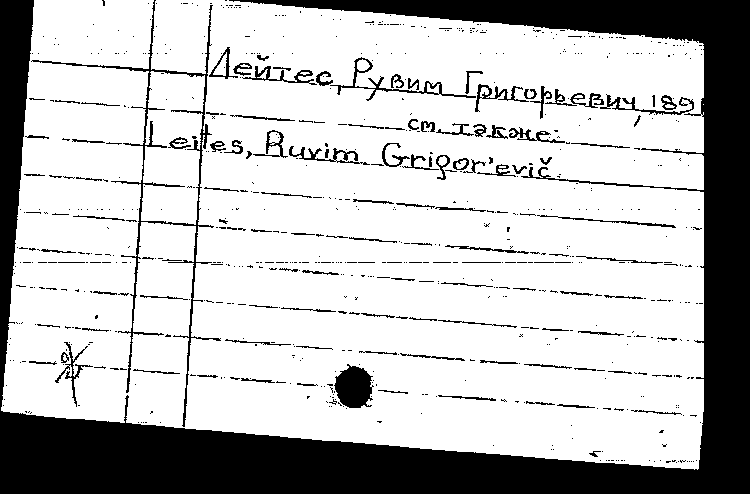 Лейтес, Рувим Григорьевич, 1891
см. также:
Leites, Ruvim Grigor'evič.